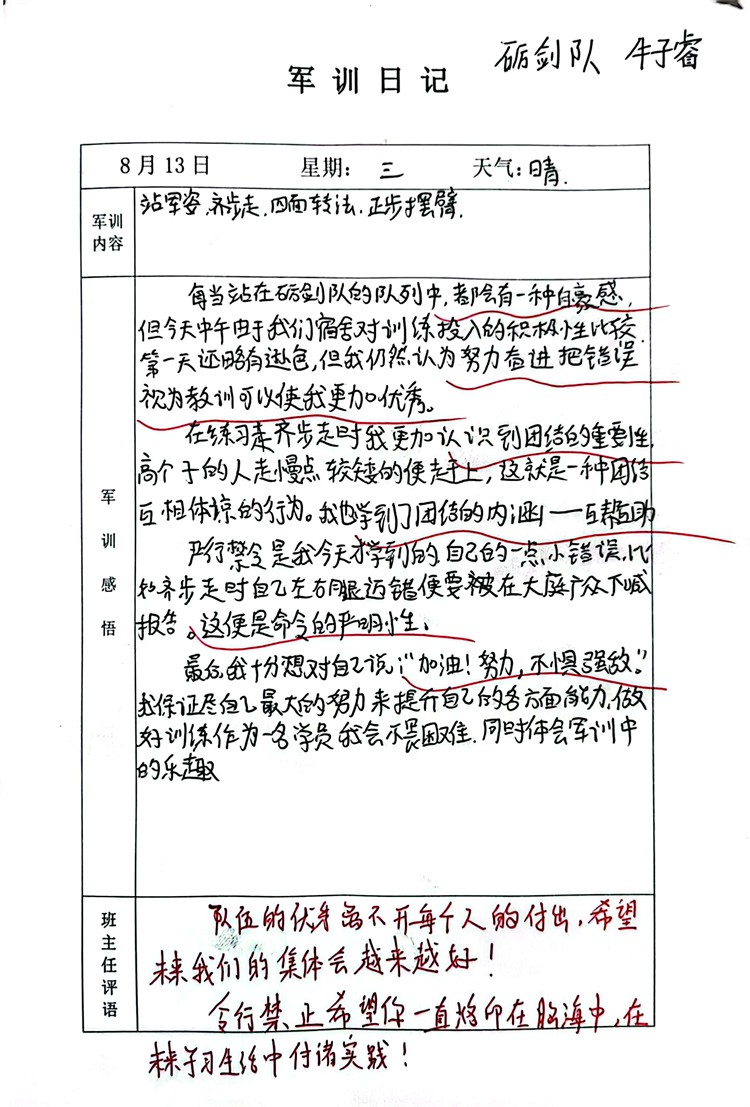 砺剑队 牛子睿
军训日记
8月13日 星期:三 天气:晴.
军训内容
站军姿.齐步走.四面转法.正步摆臂.
军训感悟
每当站在砺剑队的队列中,都会有一种自豪感,
但今天中午由于我们宿舍对训练投入的积极性比较
第一天还略有逊色,但我仍然认为努力奋进把错误
视为教训可以使我更加优秀。
在练习走齐步走时我更加认识到团结的重要性.
高个子的人走慢点较矮的便走上,这就是一种团结
互相体谅的行为。我也学到了团结的内涵——互帮互助
严行禁令是我今天才学到的.自己的一点小错误,比
如齐步走时自己左右腿迈错便要被在大庭广众下喊
报告。这便是命令的严明性.
最后我十分想对自己说:“加油!努力,不惧强敌”.
我保证尽自己最大的努力来提升自己的各方面能力,做
好训练作为一名学员我会不畏困难.同时体会军训中
的乐趣
班主任评语
队伍的优秀离不开每个人的付出,希望
未来我们的集体会越来越好!
令行禁止希望你一直烙印在脑海中,在
未来学习生活中付诸实践!